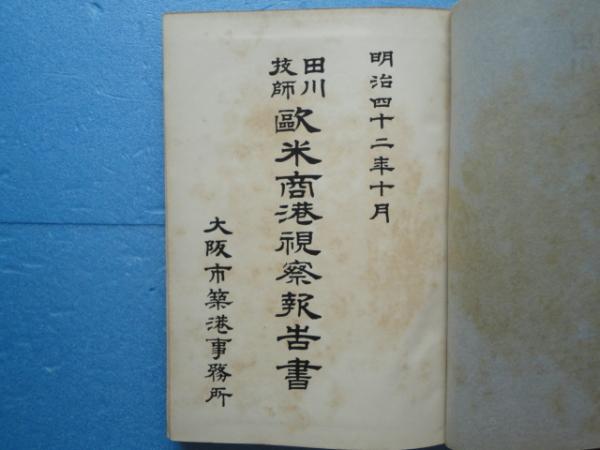 明治四十二年十月
田川技師
歐米商港視察報告書
大阪市築港事務所